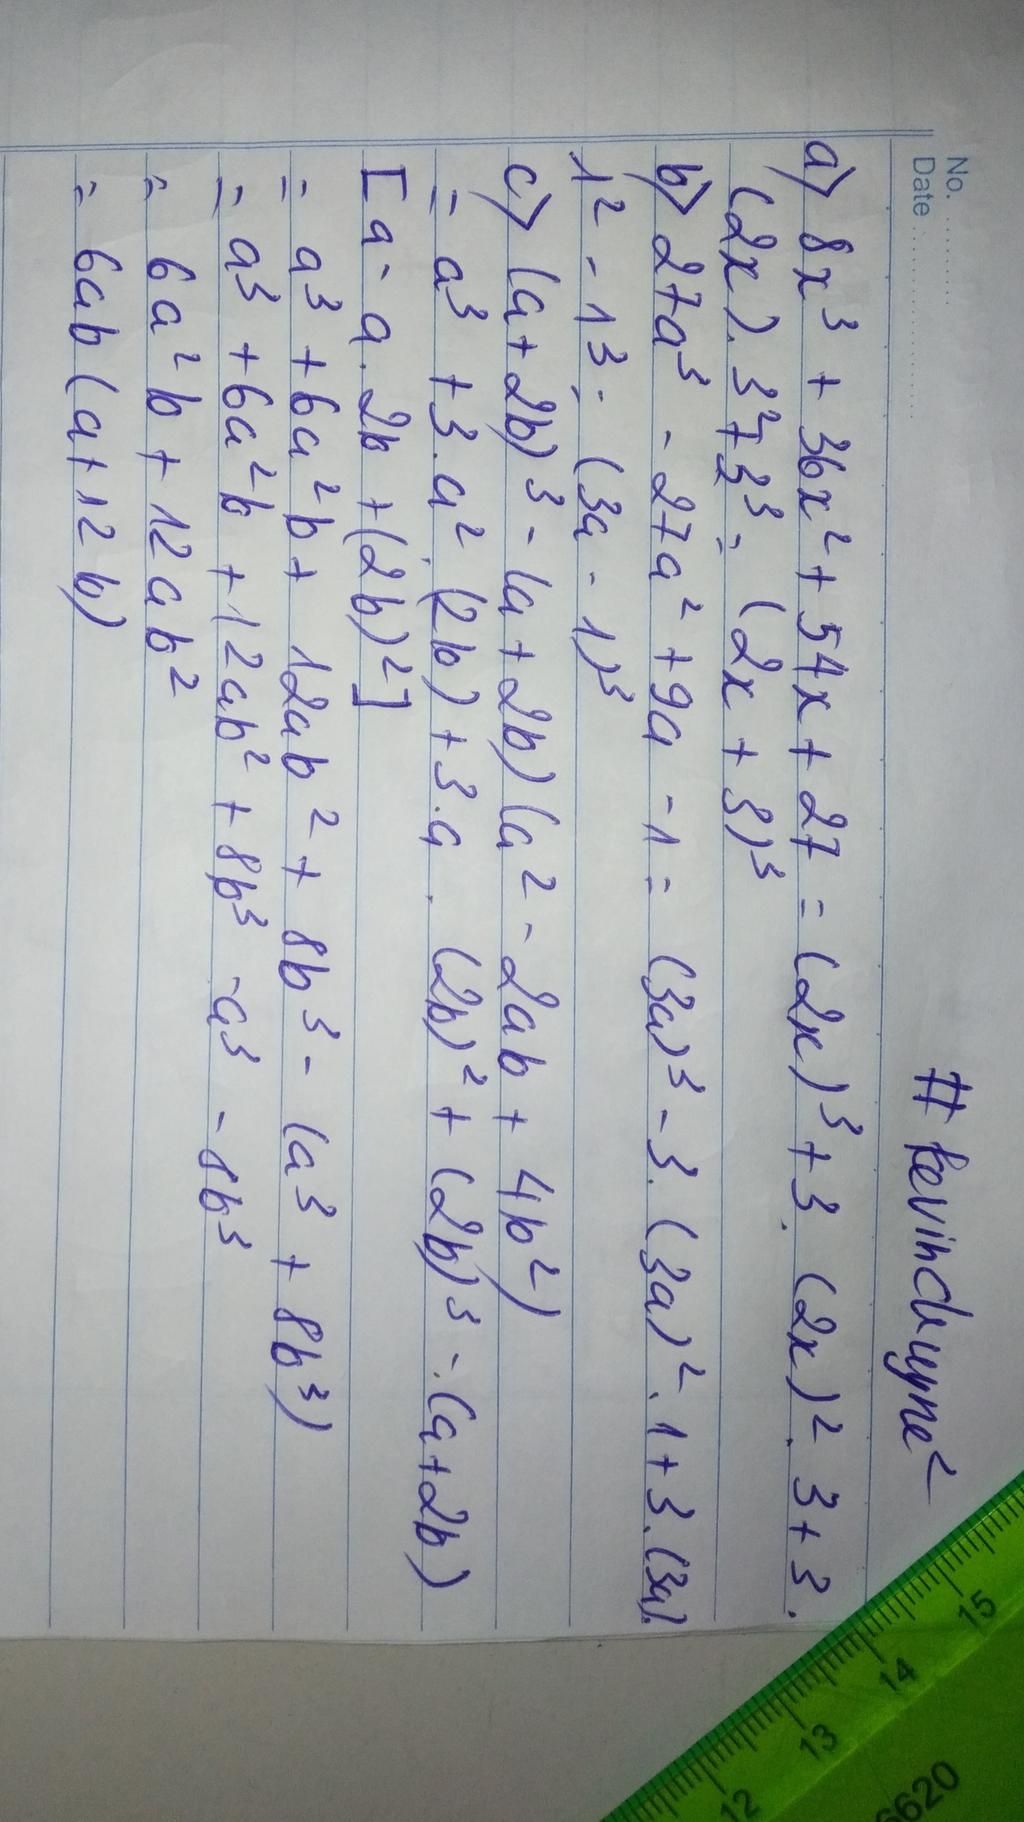 No. ..........
Date ....................
# kevinchuyne²
a) 8x³ + 36x² + 54x + 27 = (2x)³ + 3. (2x)². 3 + 3.
(2x). 3² + 3³ = (2x + 3)³
b) 27a³ - 27a² + 9a - 1 = (3a)³ - 3. (3a)². 1 + 3. (3a).
1² - 1³ = (3a - 1)³
c) (a + 2b)³ - (a + 2b) (a² - 2ab + 4b²)
= a³ + 3. a². (2b) + 3. a. (2b)² + (2b)³ - (a + 2b)
[a² - a. 2b + (2b)²]
= a³ + 6a²b + 12ab² + 8b³ - (a³ + 8b³)
= a³ + 6a²b + 12ab² + 8b³ - a³ - 8b³
= 6a²b + 12ab²
= 6ab (a + 12b)
15
14
13
12
6620